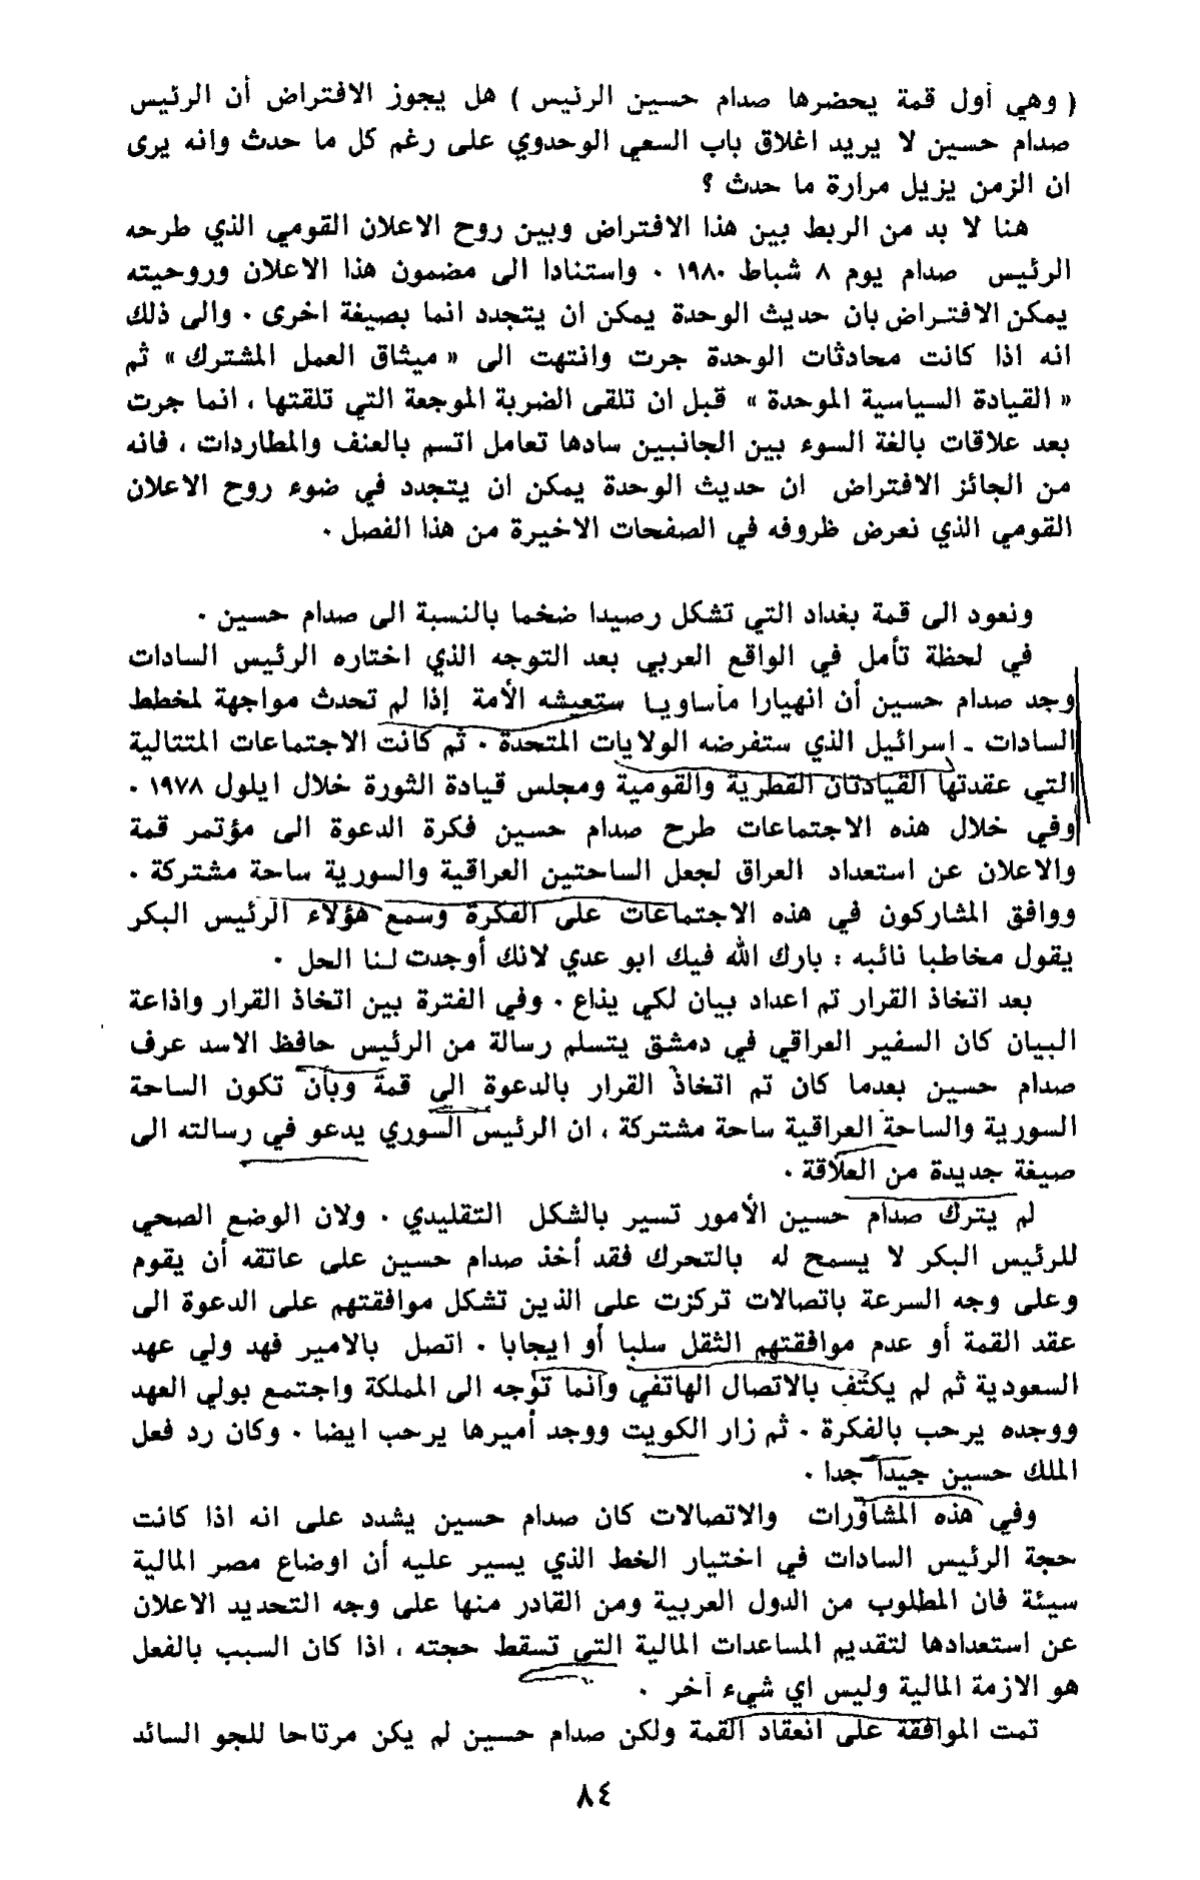 ( وهي أول قمة يحضرها صدام حسين الرئيس ) هل يجوز الافتراض أن الرئيس
صدام حسين لا يريد اغلاق باب السعي الوحدوي على رغم كل ما حدث وانه يرى
ان الزمن يزيل مرارة ما حدث ؟
هنا لا بد من الربط بين هذا الافتراض وبين روح الاعلان القومي الذي طرحه
الرئيس صدام يوم ٨ شباط ١٩٨٠ ٠ واستنادا الى مضمون هذا الاعلان وروحيته
يمكن الافتراض بان حديث الوحدة يمكن ان يتجدد انما بصيغة اخرى ٠ والى ذلك
انه اذا كانت محادثات الوحدة جرت وانتهت الى « ميثاق العمل المشترك » ثم
« القيادة السياسية الموحدة » قبل ان تلقى الضربة الموجعة التي تلقتها ، انما جرت
بعد علاقات بالغة السوء بين الجانبين سادها تعامل اتسم بالعنف والمطاردات ، فانه
من الجائز الافتراض ان حديث الوحدة يمكن ان يتجدد في ضوء روح الاعلان
القومي الذي نعرض ظروفه في الصفحات الاخيرة من هذا الفصل ٠
ونعود الى قمة بغداد التي تشكل رصيدا ضخما بالنسبة الى صدام حسين ٠
في لحظة تأمل في الواقع العربي بعد التوجه الذي اختاره الرئيس السادات
وجد صدام حسين أن انهيارا مأساويا ستعيشه الأمة إذا لم تحدث مواجهة لمخطط
السادات ـ اسرائيل الذي ستفرضه الولايات المتحدة ٠ ثم كانت الاجتماعات المتتالية
التي عقدتها القيادتان القطرية والقومية ومجلس قيادة الثورة خلال ايلول ١٩٧٨ ٠
وفي خلال هذه الاجتماعات طرح صدام حسين فكرة الدعوة الى مؤتمر قمة
والاعلان عن استعداد العراق لجعل الساحتين العراقية والسورية ساحة مشتركة ٠
ووافق المشاركون في هذه الاجتماعات على الفكرة وسمع هؤلاء الرئيس البكر
يقول مخاطبا نائبه : بارك الله فيك ابو عدي لانك أوجدت لنا الحل ٠
بعد اتخاذ القرار تم اعداد بيان لكي يذاع ٠ وفي الفترة بين اتخاذ القرار واذاعة
البيان كان السفير العراقي في دمشق يتسلم رسالة من الرئيس حافظ الاسد عرف
صدام حسين بعدما كان تم اتخاذ القرار بالدعوة الى قمة وبأن تكون الساحة
السورية والساحة العراقية ساحة مشتركة ، ان الرئيس السوري يدعو في رسالته الى
صيغة جديدة من العلاقة ٠
لم يترك صدام حسين الأمور تسير بالشكل التقليدي ٠ ولان الوضع الصحي
للرئيس البكر لا يسمح له بالتحرك فقد أخذ صدام حسين على عاتقه أن يقوم
وعلى وجه السرعة باتصالات تركزت على الذين تشكل موافقتهم على الدعوة الى
عقد القمة أو عدم موافقتهم الثقل سلبا أو ايجابا ٠ اتصل بالامير فهد ولي عهد
السعودية ثم لم يكتف بالاتصال الهاتفي وانما توجه الى المملكة واجتمع بولي العهد
ووجده يرحب بالفكرة ٠ ثم زار الكويت ووجد أميرها يرحب ايضا ٠ وكان رد فعل
الملك حسين جيدا جدا ٠
وفي هذه المشاورات والاتصالات كان صدام حسين يشدد على انه اذا كانت
حجة الرئيس السادات في اختيار الخط الذي يسير عليه أن اوضاع مصر المالية
سيئة فان المطلوب من الدول العربية ومن القادر منها على وجه التحديد الاعلان
عن استعدادها لتقديم المساعدات المالية التي تسقط حجته ، اذا كان السبب بالفعل
هو الازمة المالية وليس اي شيء آخر ٠
تمت الموافقة على انعقاد القمة ولكن صدام حسين لم يكن مرتاحا للجو السائد
٨٤